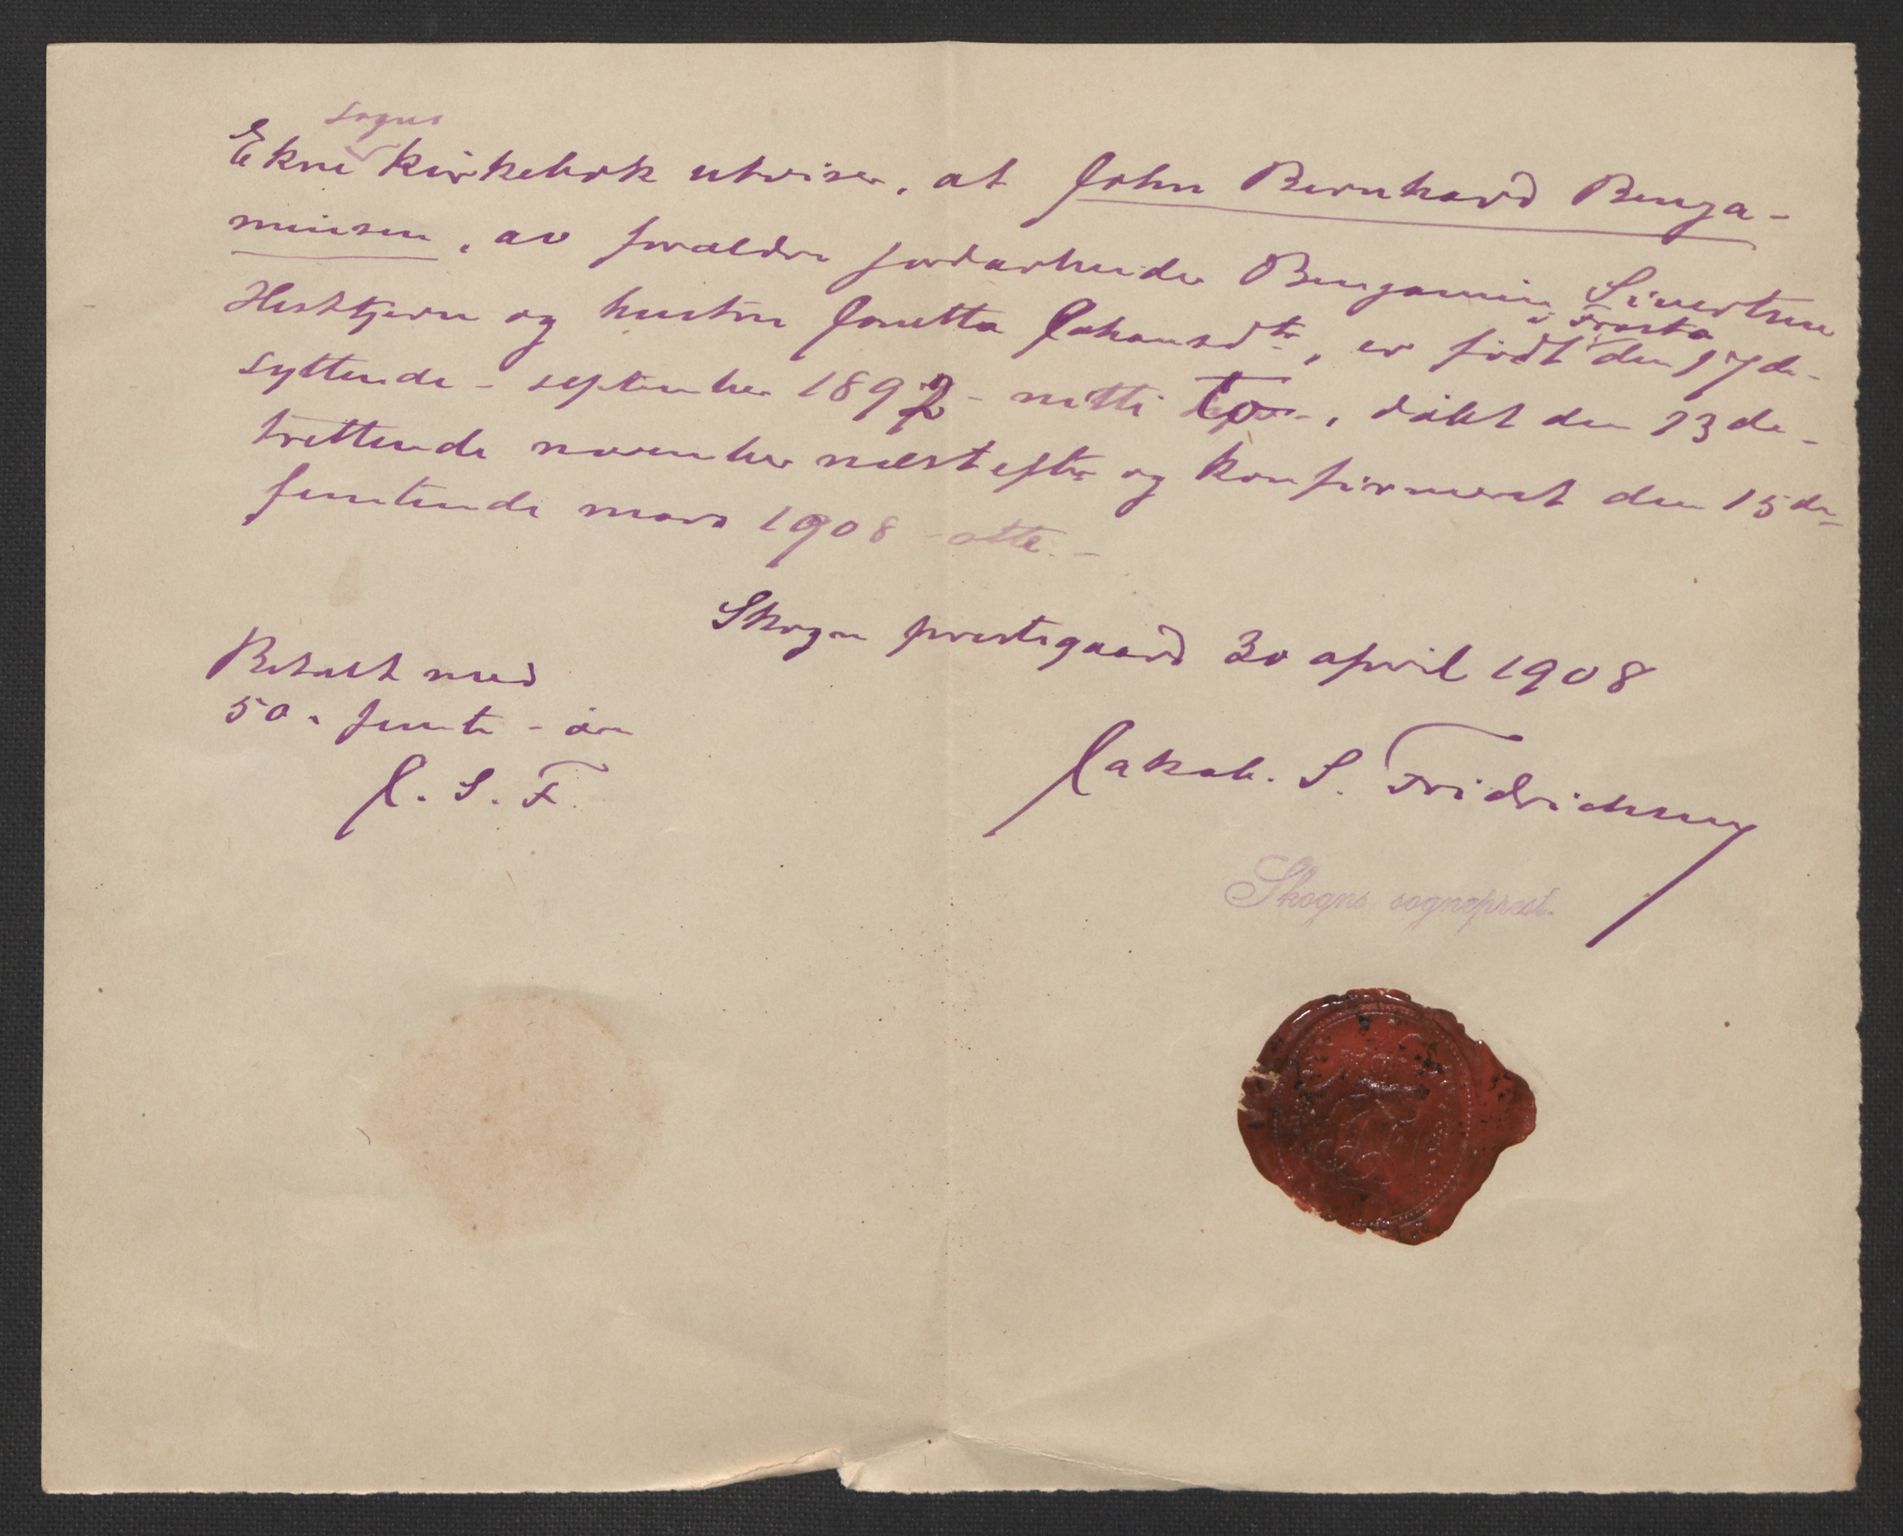 Ekne sogns kirkebok utviser, at John Bernhard Benja-
minsen, av forældre jordarbeider Benjamin Sivertsen
Hestkjern og hustru Jonetta Johansdtr, er født i Frosta den 17de -
syttende - september 1892 - nitti to -, døbt den 13de -
trettende november næstefter og konfirmeret den 15de -
femtende mars 1908 - otte. -
Skogn prestegaard 30 april 1908
Betalt med
50 - femti - øre
J. S. F.
Jakob. S. Fridrichsen
Skogns sogneprest.